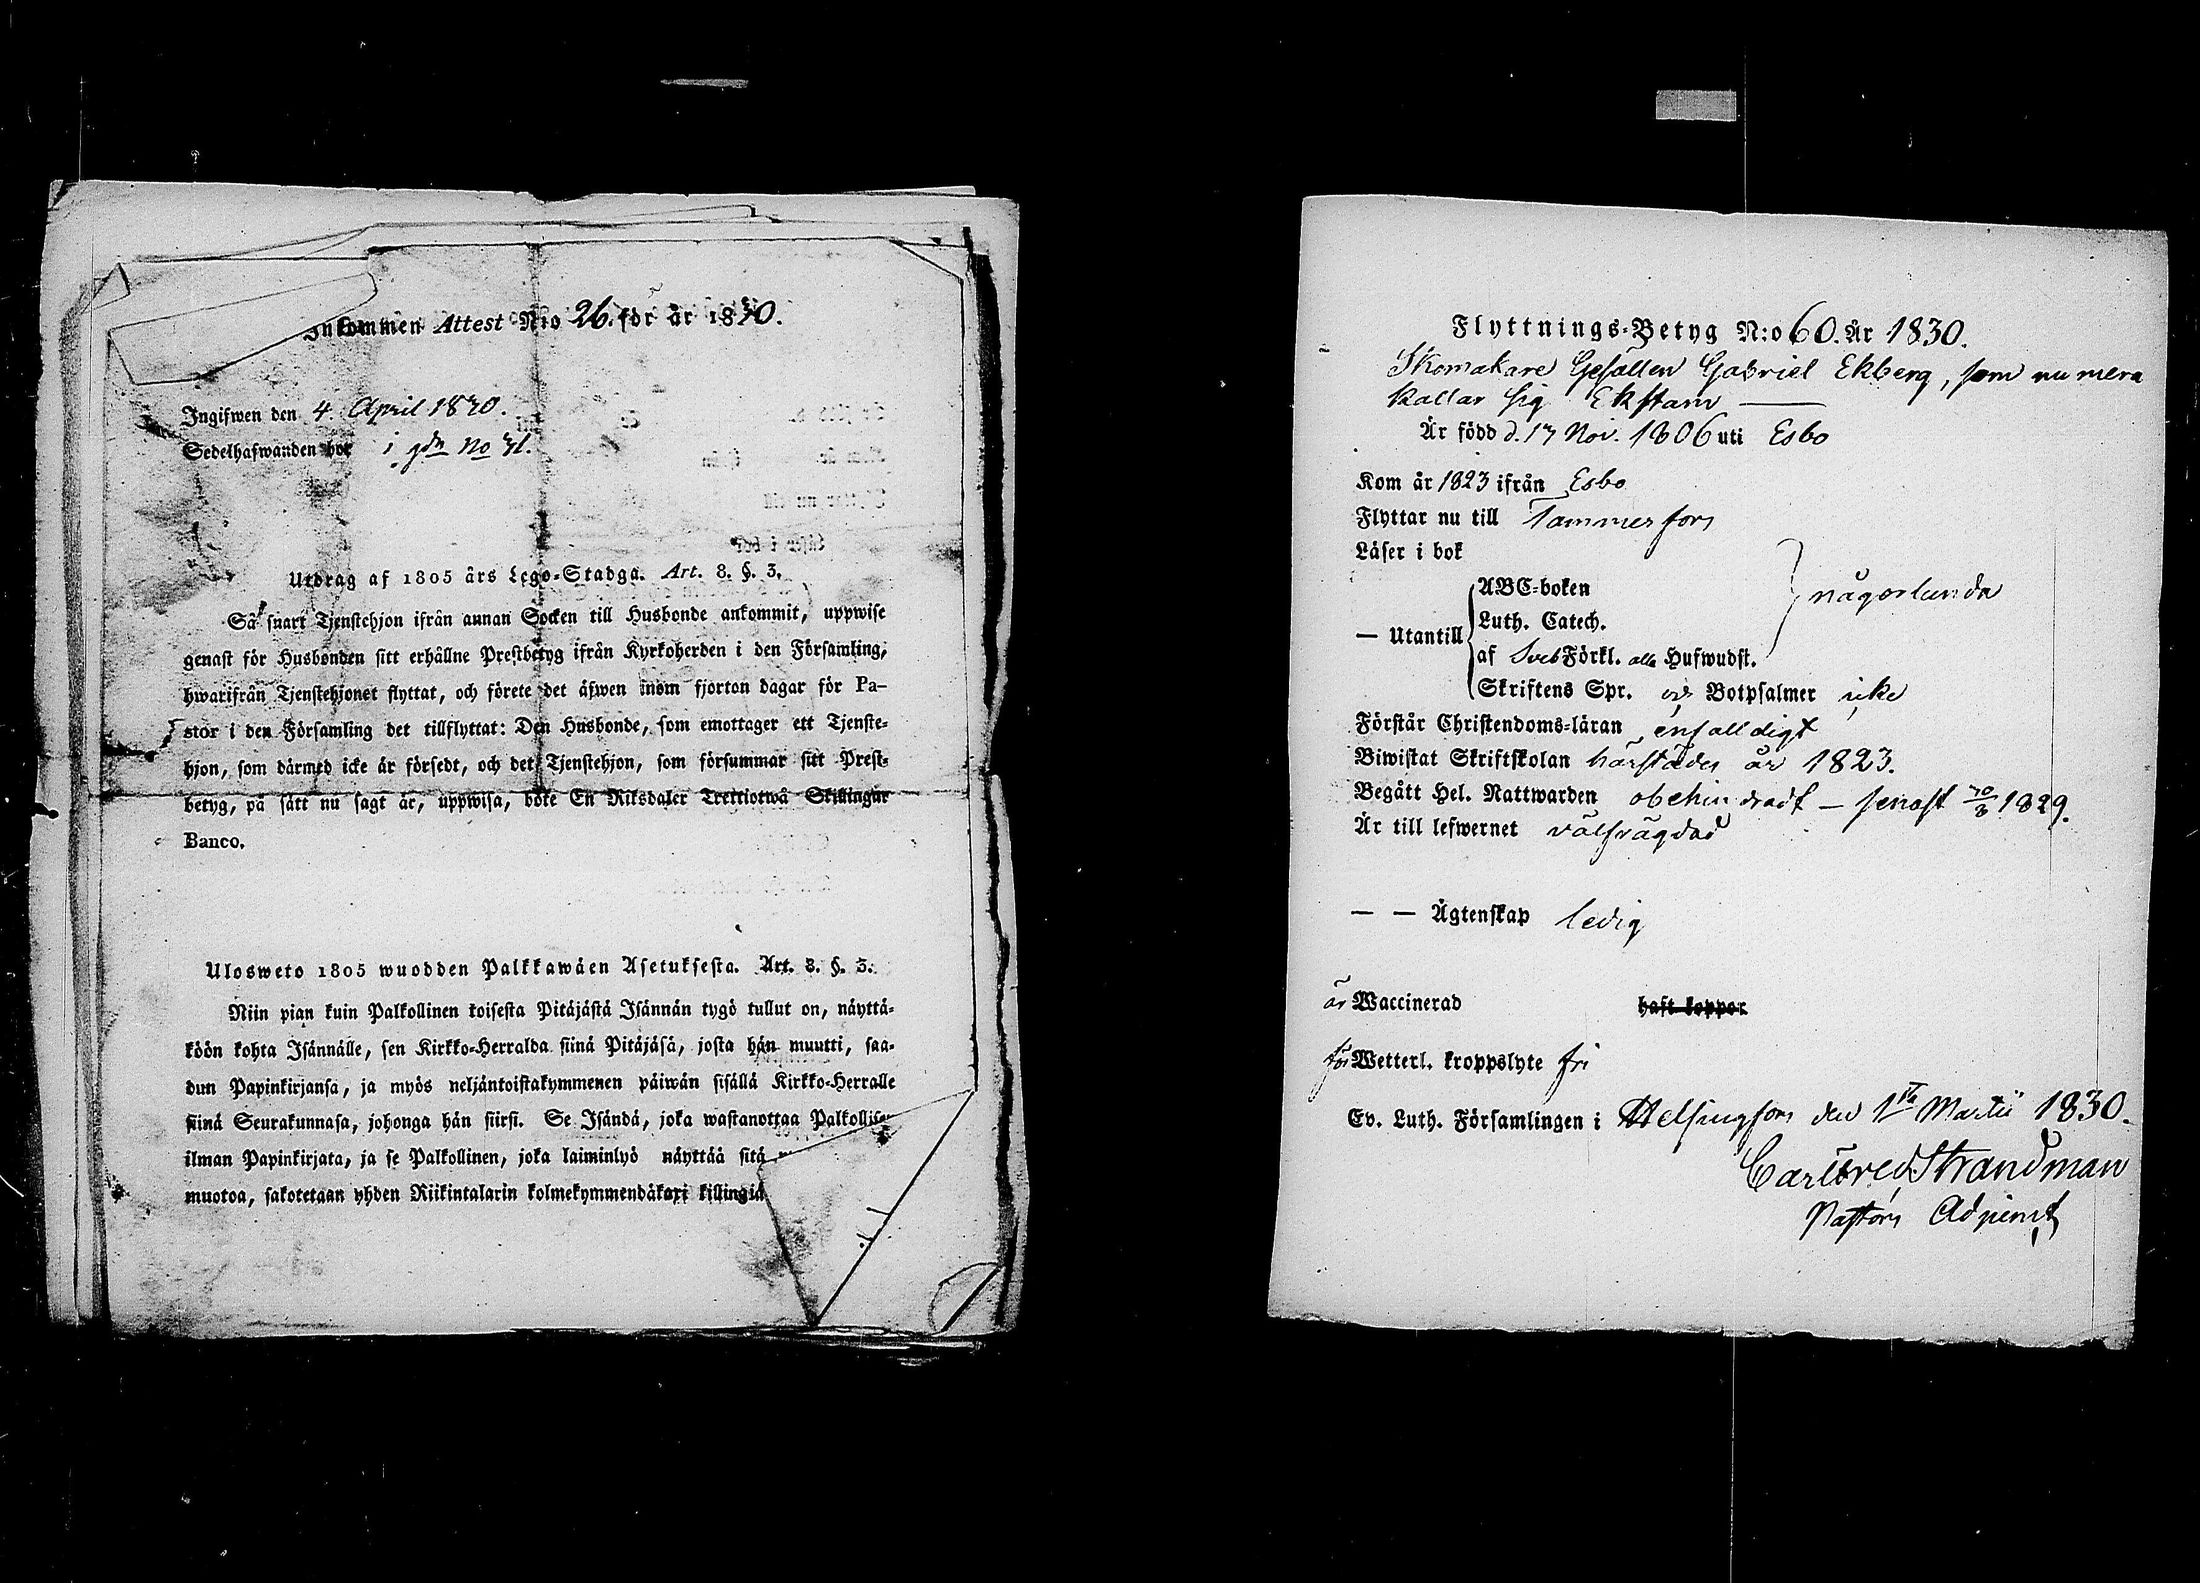 Inkommen Attest N:o 26. för år 1830.
Ingifwen den 4 April 1830.
Sedelhafwanden bor i gdn No 31.
Utdrag af 1805 års Lego-Stadga. Art. 8. §. 3.
Så snart Tjenstehjon ifrån annan Socken till Husbonde ankommit, uppwise
genast för Husbonden sitt erhållne Prestbetyg ifrån Kyrkoherden i den Församling,
hwarifrån Tjenstehjonet flyttat, och förete det äfwen inom fjorton dagar för Pa-
stor i den Församling det tillflyttat: Den Husbonde, som emottager ett Tjenste-
hjon, som därmed icke är försedt, och det Tjenstehjon, som försummar sitt Prest-
betyg, på sätt nu sagt är, uppwisa, böte En Riksdaler Trettiotwå Skillingar
Banco.
Ulosweto 1805 wuodden Palkkawäen Asetuksesta. Art. 8. §. 3.
Niin pian kuin Palkollinen toisesta Pitäjästä Isännän tygö tullut on, näyttä-
köön kohta Isännälle, sen Kirkko-Herralda siinä Pitäjäsä, josta hän muutti, saa-
dun Papinkirjansa, ja myös neljäntoistakymmenen päiwän sisällä Kirkko-Herralle
siinä Seurakunnasa, johonga hän siirsi. Se Isändä, joka wastanottaa Palkollisen
ilman Papinkirjata, ja se Palkollinen, joka laiminlyö näyttää sitä
muotoa, sakotetaan yhden Riikintalarin kolmekymmendäkaxi killingiä
Flyttnings-Betyg N:o 60. År 1830.
Skomakare Gesällen Gabriel Ekberg, som nu mera
kallar sig Ekstam
Är född d. 17 Nov. 1806 uti Esbo
Kom år 1823 ifrån Esbo
Flyttar nu till Tammerfors
Läser i bok
ABC-boken
någorlunda
Luth. Catech.
— Utantill
af Sveb Förkl. alla Hufwudst.
Skriftens Spr. och Botpsalmer icke
Förstår Christendoms-läran enfalldigt
Biwistat Skriftskolan härstädes år 1823.
Begått Hel. Nattwarden obehindradt — senast 1829.
Är till lefwernet välfrägdad
— — Ägtenskap ledig
är Waccinerad haft koppor
för Wetterl. kroppslyte fri
Ev. Luth. Församlingen i Helsingfors den 1sta Martii 1830.
Strandman
Pastors Adjunct